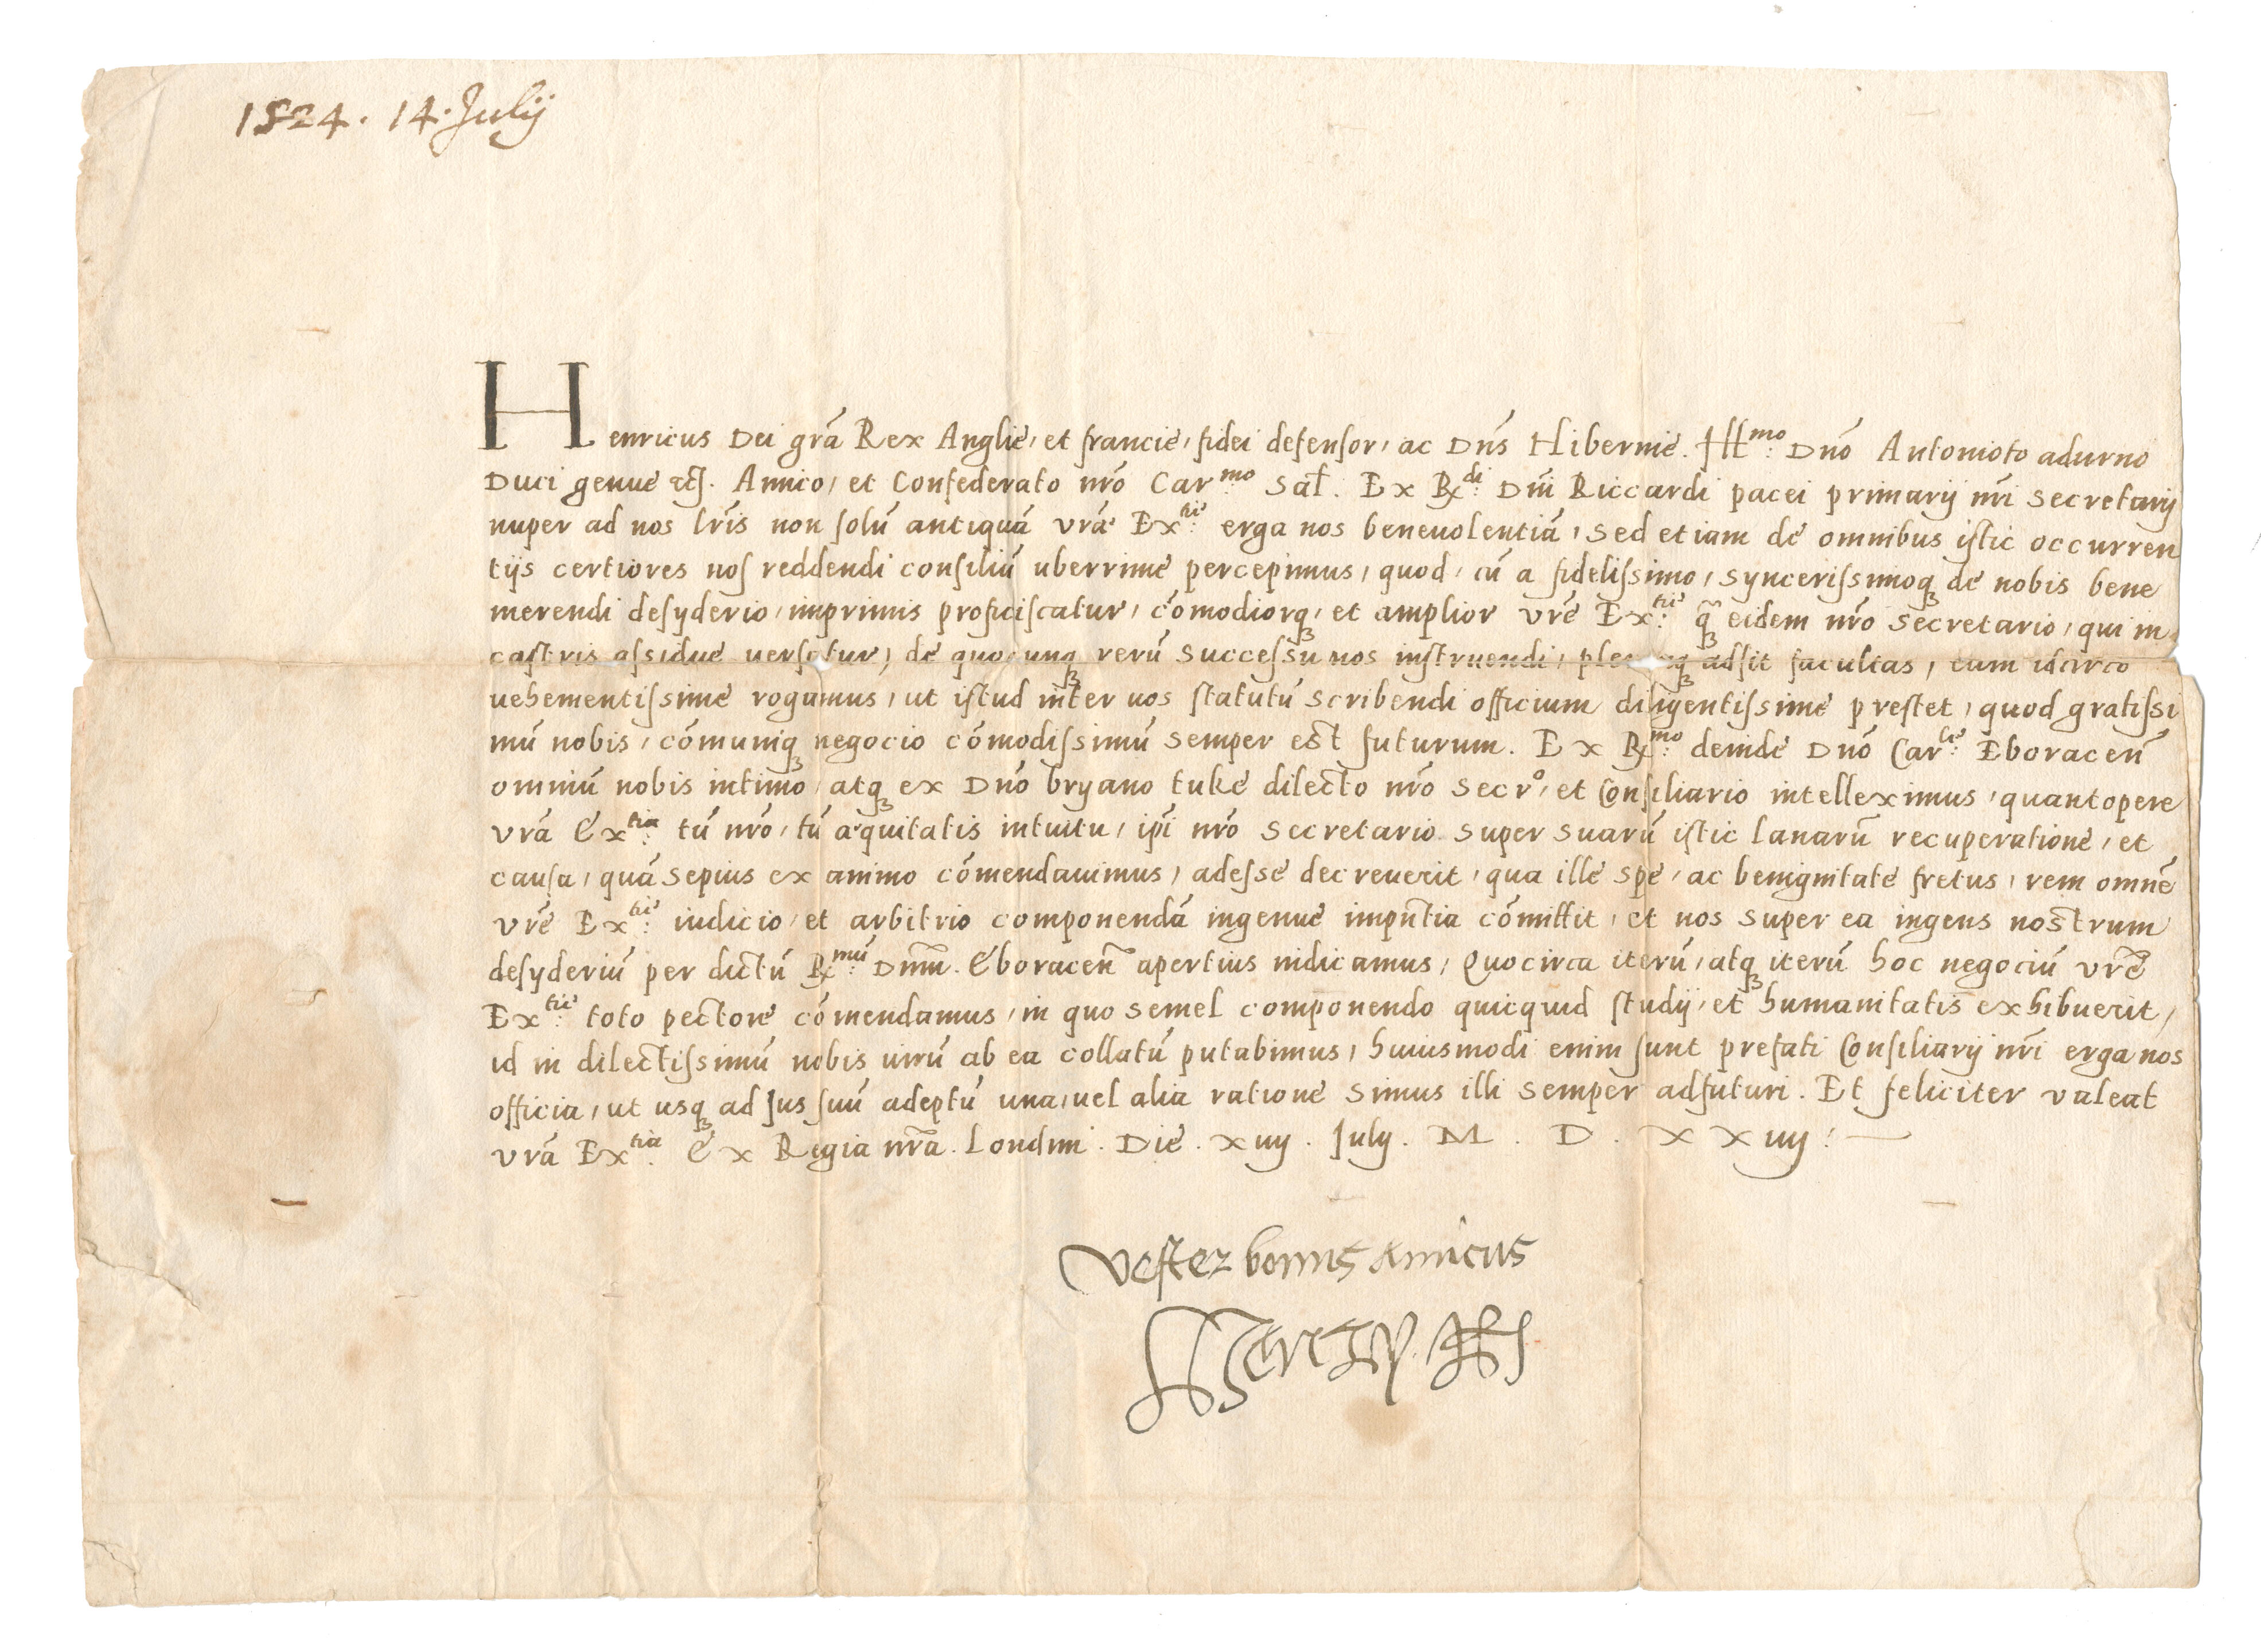 1524. 14. Julij
Henricus Dei grã Rex Anglie, et francie, fidei defensor, ac Dñs Hibernie. Ill^mo: Dño Antonioto adurno
Duci genue etc. Amico, et Confederato nr̃o Car^mo Saĺ. Ex R^di: Dñi Riccardi pacei primarij nr̃i secretarij
nuper ad nos lr̃is non solũ antiquã vrẽ Ex^tie: erga nos beneuolentiã, sed etiam de omnibus istic occurren
tijs certiores nos reddendi consiliũ uberrime percepimus, quod, cũ a fidelissimo, syncerissimoq de nobis bene
merendi desyderio, imprimis proficiscatur, cõmodiorq, et amplior vrẽ Ex^tie: q̃ eidem nr̃o secretario, qui in
castris assidue uersatur, de quocunq rerũ successu nos instruendi, adsit facultas, eam idcirco
vehementissime rogamus, ut istud inter uos statutũ scribendi officium diligentissime prestet, quod gratissi
mũ nobis, cõmuniq negocio cõmodissimũ semper est futurum. Ex R^mo: deinde Dño Car^le: Eboraceñ
omniũ nobis intimo, atq ex Dño bryano tuke dilecto nr̃o secr^o, et Consiliario intelleximus, quantopere
vrã Ex^tia: tũ nr̃o, tũ aequitatis intuitu, ip̃i nr̃o secretario super suarũ istic lanarũ recuperatione, et
causa, quã sepius ex animo cõmendauimus, adesse decreuerit, qua ille spe, ac benignitate fretus, rem omnẽ
vrẽ Ex^tie: iudicio, et arbitrio componendã ingenue impñtia cõmittit, et nos super ea ingens nostrum
desyderiũ per dictũ R^mũ: Dñum. Eboraceñ apertius indicamus, Quocirca iterũ, atq iterũ hoc negociũ vrẽ
Ex^tie: toto pectore cõmendamus, in quo semel componendo quicquid studij, et humanitatis exhibuerit,
id in dilectissimũ nobis uirũ ab ea collatũ putabimus, huiusmodi enim sunt prefati Consiliarij nr̃i erga nos
officia, ut usq ad Jus suũ adeptũ una, uel alia ratione simus illi semper adfuturi. Et feliciter valeat
vrã Ex^tia. Ex Regia nr̃a. Londini. Die. xiiij. Julij. M. D. XXiiij.
Vester bonus amicus
Henry R